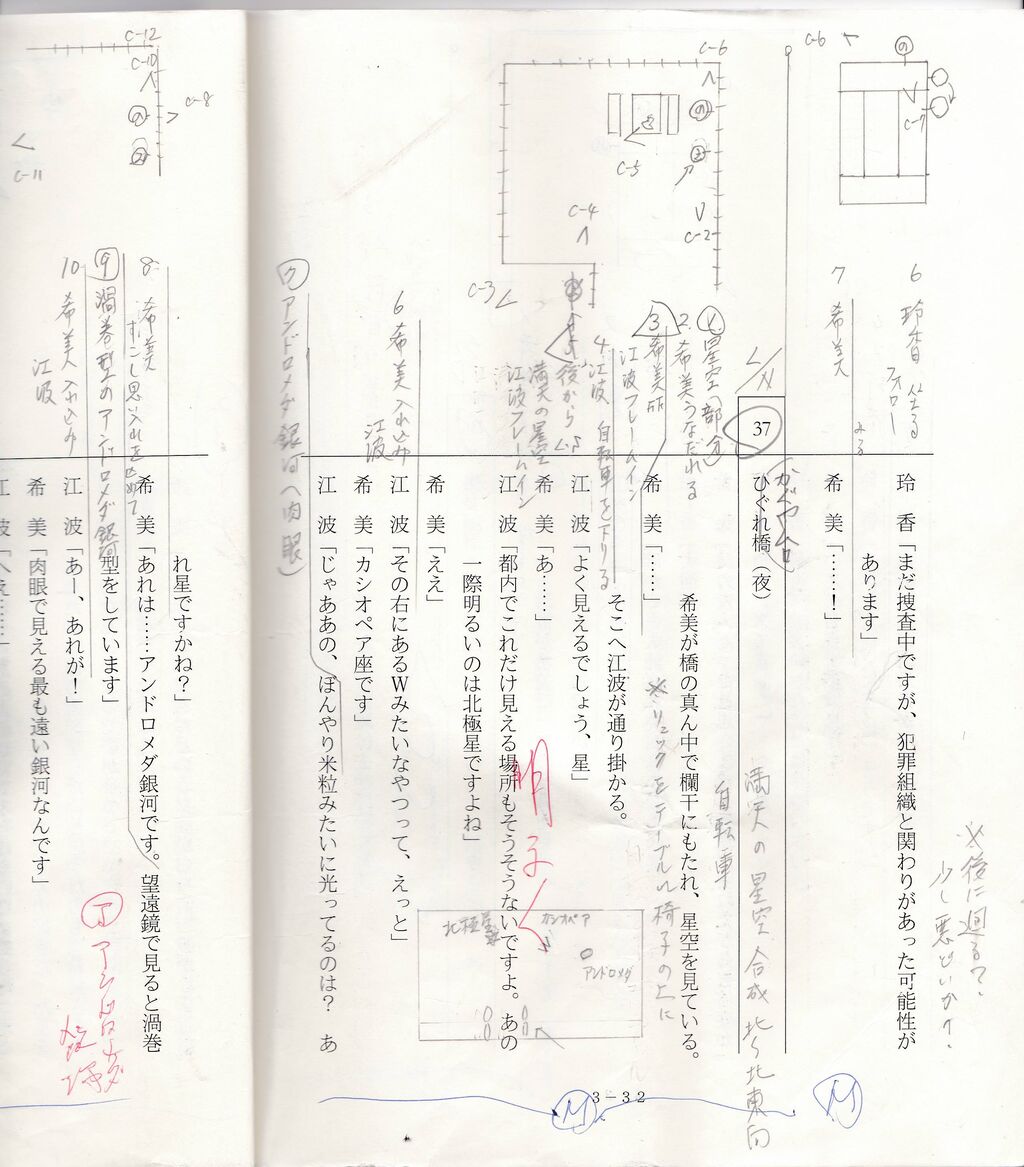 C-6
の
C-7
6 玲香 坐る
フォロー
7 希美
みる
玲 香「まだ捜査中ですが、犯罪組織と関わりがあった可能性が
あります」
希 美「……！」
※後に廻る?
M
C-6
の
C-5
C-4
C-2
C-3
L/N
37
ひぐれ橋（夜）
満天の星空 合成 北〜北東向
1. 星空（部分）
2. 希美うなだれる
3 希美所
江波フレームイン
4. 江波 自転車を下りる
5 後から
満天の星空
江波フレームイン
希美が橋の真ん中で欄干にもたれ、星空を見ている。
自転車
※リュックをテーブルか椅子の上に
希 美「……」
そこへ江波が通り掛かる。
江 波「よく見えるでしょう、星」
希 美「あ……」
江 波「都内でこれだけ見える場所もそうそうないですよ。あの
一際明るいのは北極星ですよね」
明るく
希 美「ええ」
6 希美 入れ込み
江波
江 波「その右にあるWみたいなやつって、えっと」
希 美「カシオペア座です」
⑦ アンドロメダ銀河（肉眼）
江 波「じゃああの、ぼんやり米粒みたいに光ってるのは？ あ
北極星
カシオペア
アンドロメダ
3－32
M
C-12
C-10
C-8
の
C-11
れ星ですかね？」
8. 希美
すこし思入れをこめて
希 美「あれは……アンドロメダ銀河です。望遠鏡で見ると渦巻
⑨ 渦巻型のアンドロメダ銀河
型をしています」
10 希美 入れ込み
江波
江 波「あー、あれが！」
希 美「肉眼で見える最も遠い銀河なんです」
江 波「へえ……」
ア アンドロメダ